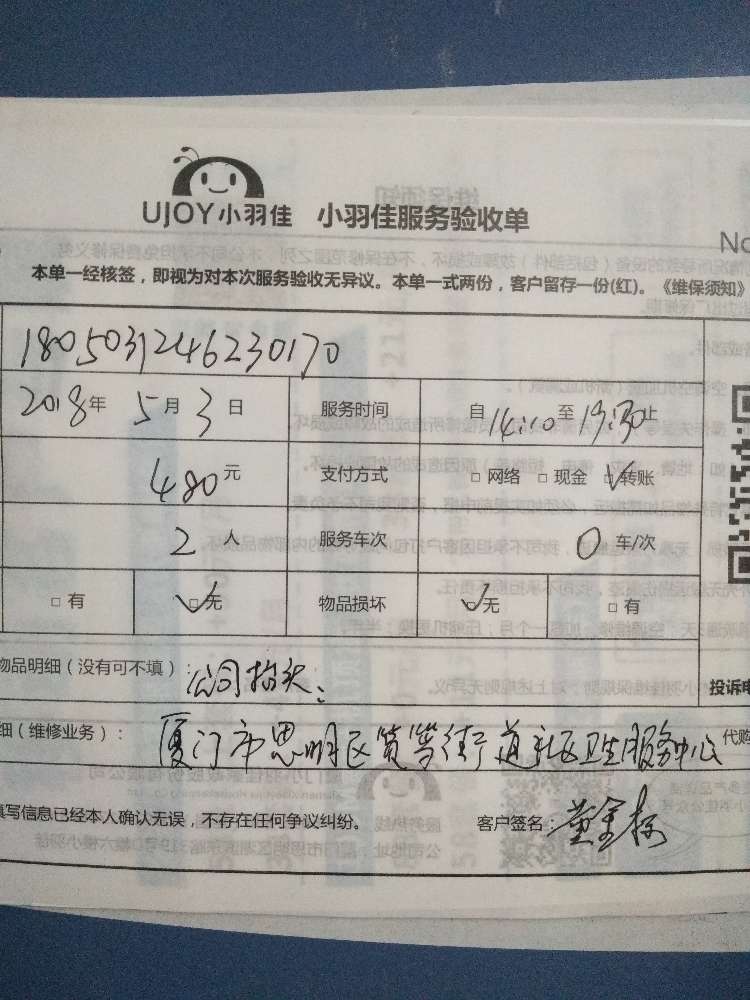 UJOY小羽佳 小羽佳服务验收单
No
本单一经核签，即视为对本次服务验收无异议。本单一式两份，客户留存一份(红)。《维保须知》
1805031246230170
2018年 5月 3日 服务时间 自14:10至19:30止
480元 支付方式 □网络 □现金 ☑转账
2人 服务车次 0车/次
□有 ☑无 物品损坏 ☑无 □有
物品明细（没有可不填）： 公司抬头：
投诉电
细（维修业务）： 厦门市思明区筼筜街道社区卫生服务中心 代购
填写信息已经本人确认无误，不存在任何争议纠纷。 客户签名：黄